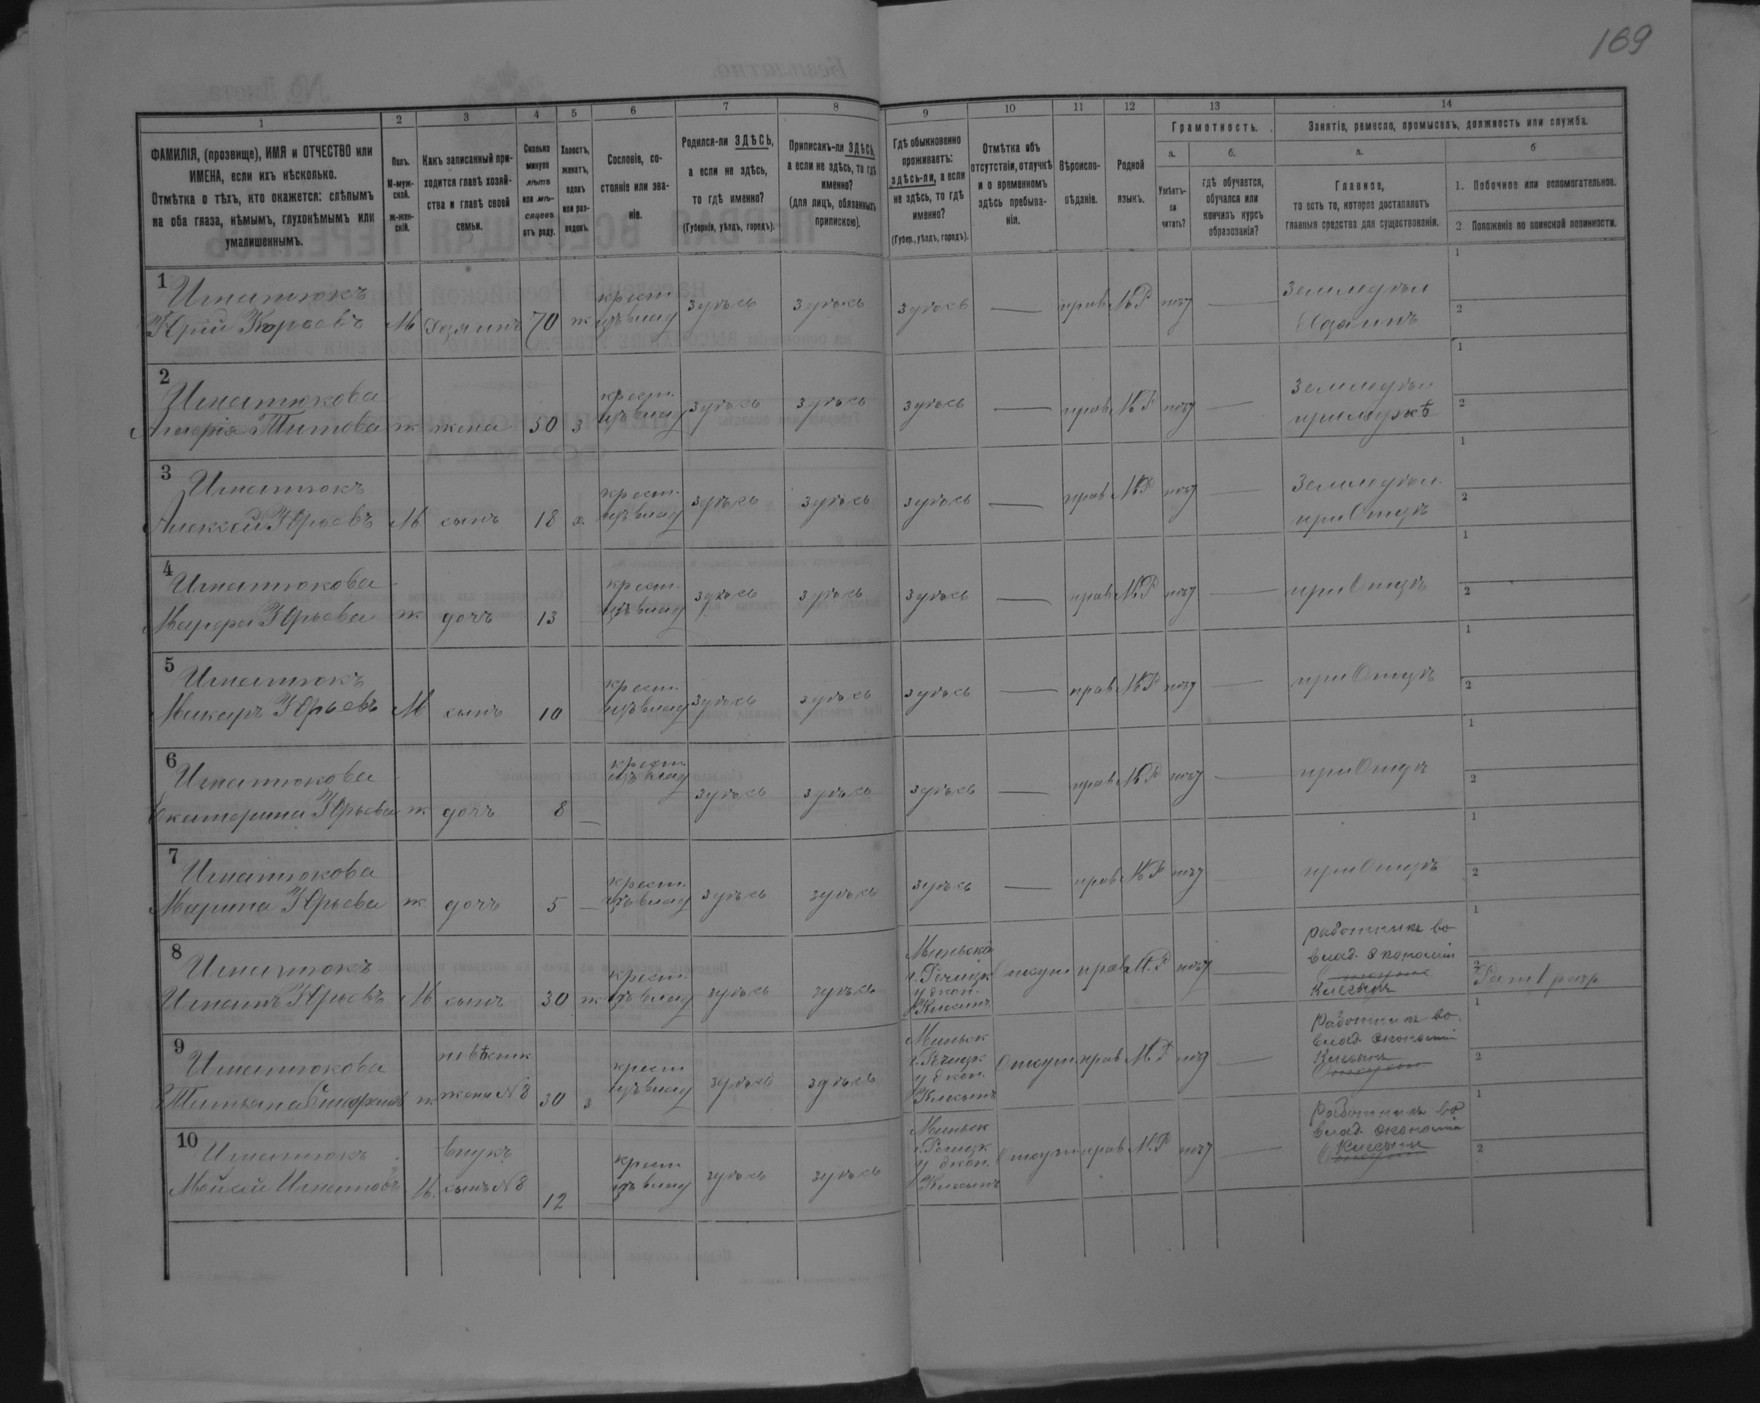 169
1
2
3
4
5
6
7
8
9
10
11
12
13
14
ФАМИЛІЯ, (прозвище), ИМЯ и ОТЧЕСТВО или
ИМЕНА, если ихъ нѣсколько.
Отмѣтка о тѣхъ, кто окажется: слѣпымъ
на оба глаза, нѣмымъ, глухонѣмымъ или
умалишеннымъ.
Полъ.
М-муж-
ской.
ж-жен-
скій.
Какъ записанный при-
ходится главѣ хозяй-
ства и главѣ своей
семьи.
Сколько
минуло
лѣтъ
или мѣ-
сяцевъ
отъ роду.
Холостъ,
женатъ,
вдовъ
или раз-
веденъ.
Сословіе, со-
стояніе или зва-
ніе.
Родился-ли ЗДѢСЬ,
а если не здѣсь,
то гдѣ именно?
(Губернія, уѣздъ, городъ).
Приписанъ-ли ЗДѢСЬ,
а если не здѣсь, то гдѣ
именно?
(для лицъ, обязанныхъ
припискою).
Гдѣ обыкновенно
проживаетъ:
здѣсь-ли, а если
не здѣсь, то гдѣ
именно?
(Губер., уѣздъ, городъ).
Отмѣтка объ
отсутствіи, отлучкѣ
и о временномъ
здѣсь пребыва-
ніи.
Вѣроиспо-
вѣданіе.
Родной
языкъ.
Грамотность.
а.
Умѣетъ-
ли
читать?
б.
гдѣ обучается,
обучался или
кончилъ курсъ
образованія?
Занятіе, ремесло, промыселъ, должность или служба.
а.
Главное,
то есть то, которое доставляетъ
главныя средства для существованія.
б
1. Побочное или вспомогательное.
2. Положеніе по воинской повинности.
1
Игнатюкъ
Юрій Карповъ
М
хозяинъ
70
ж
крест.
изъ влад
здѣсь
здѣсь
здѣсь
—
прав
М.Р
нѣтъ
—
Земледѣл
Хозяинъ
1
2
2
Игнатюкова
Титова
ж
жена
50
з
крест.
изъ влад
здѣсь
здѣсь
здѣсь
—
прав
М.Р
нѣтъ
—
Земледѣл
при мужѣ
1
2
3
Игнатюкъ
Алексѣй Юрьевъ
М
сынъ
18
х
крест.
изъ влад
здѣсь
здѣсь
здѣсь
—
прав
М.Р
нѣтъ
—
Земледѣл.
при Отцѣ
1
2
4
Игнатюкова
Марфа Юрьева
ж
дочь
13
крест.
изъ влад
здѣсь
здѣсь
здѣсь
—
прав
М.Р
нѣтъ
—
при Отцѣ
1
2
5
Игнатюкъ
Макаръ Юрьевъ
М
сынъ
10
крест.
изъ влад
здѣсь
здѣсь
здѣсь
—
прав
М.Р
нѣтъ
—
при Отцѣ
1
2
6
Игнатюкова
Екатерина Юрьева
ж
дочь
8
—
крест.
изъ влад
здѣсь
здѣсь
здѣсь
—
прав
М.Р
нѣтъ
—
при Отцѣ
1
2
7
Игнатюкова
Марина Юрьева
ж
дочь
5
—
крест.
изъ влад
здѣсь
здѣсь
здѣсь
—
прав
М.Р
нѣтъ
—
при Отцѣ
1
2
8
Игнатюкъ
Игнатъ Юрьевъ
М.
сынъ
30
ж
крест.
изъ влад
здѣсь
здѣсь
Рѣчицк
прав
М.Р
нѣтъ
—
работникъ во
влад. экономіи
1
2
9
Игнатюкова
Татьяна
ж
невѣстк
жена №8
30
з
крест
изъ влад
здѣсь
здѣсь
Минск
г. Рѣчицк
у экон.
прав
М.Р
нѣтъ
—
Работникъ во
влад. экономіи
1
2
10
Игнатюкъ
Мойсѣй Игнатовъ
М.
внукъ
сынъ №8
12
крест
изъ влад
здѣсь
здѣсь
Минск
г. Рѣчицк
у экон.
прав
М.Р
нѣтъ
—
Работникъ во
влад. экономіи
1
2